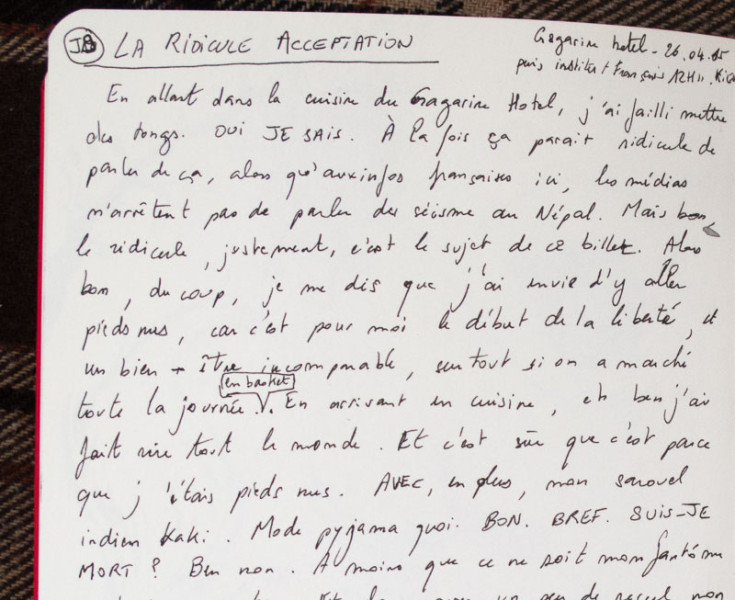 J8 LA RIDICULE ACCEPTATION
Gagarine hotel - 26.04.15
puis institut Français 12H11.
En allant dans la cuisine du Gagarine Hotel, j'ai failli mettre
des tongs. OUI JE SAIS. À la fois ça parait ridicule de
parler de ça, alors qu'aux infos françaises ici, les médias
n'arrêtent pas de parler du séisme au Népal. Mais bon,
le ridicule, justement, c'est le sujet de ce billet. Alors
bon, du coup, je me dis que j'ai envie d'y aller
pieds nus, car c'est pour moi le début de la liberté, et
un bien-être incomparable, surtout si on a marché
en basket
toute la journée. En arrivant en cuisine, eh ben j'ai
fait rire tout le monde. Et c'est sûr que c'est parce
que j'étais pieds nus. AVEC, en plus, mon sarouel
indien kaki. Mode pyjama quoi. BON. BREF. SUIS-JE
MORT ? Ben non. À moins que ce ne soit mon fantôme